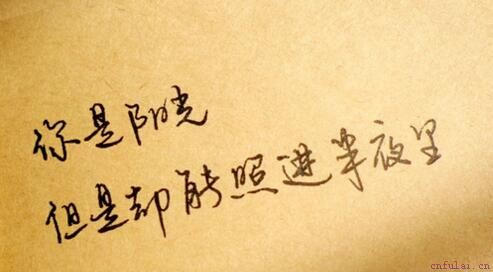 你是阳光
但是却能照进半夜里
cnfulai.cn